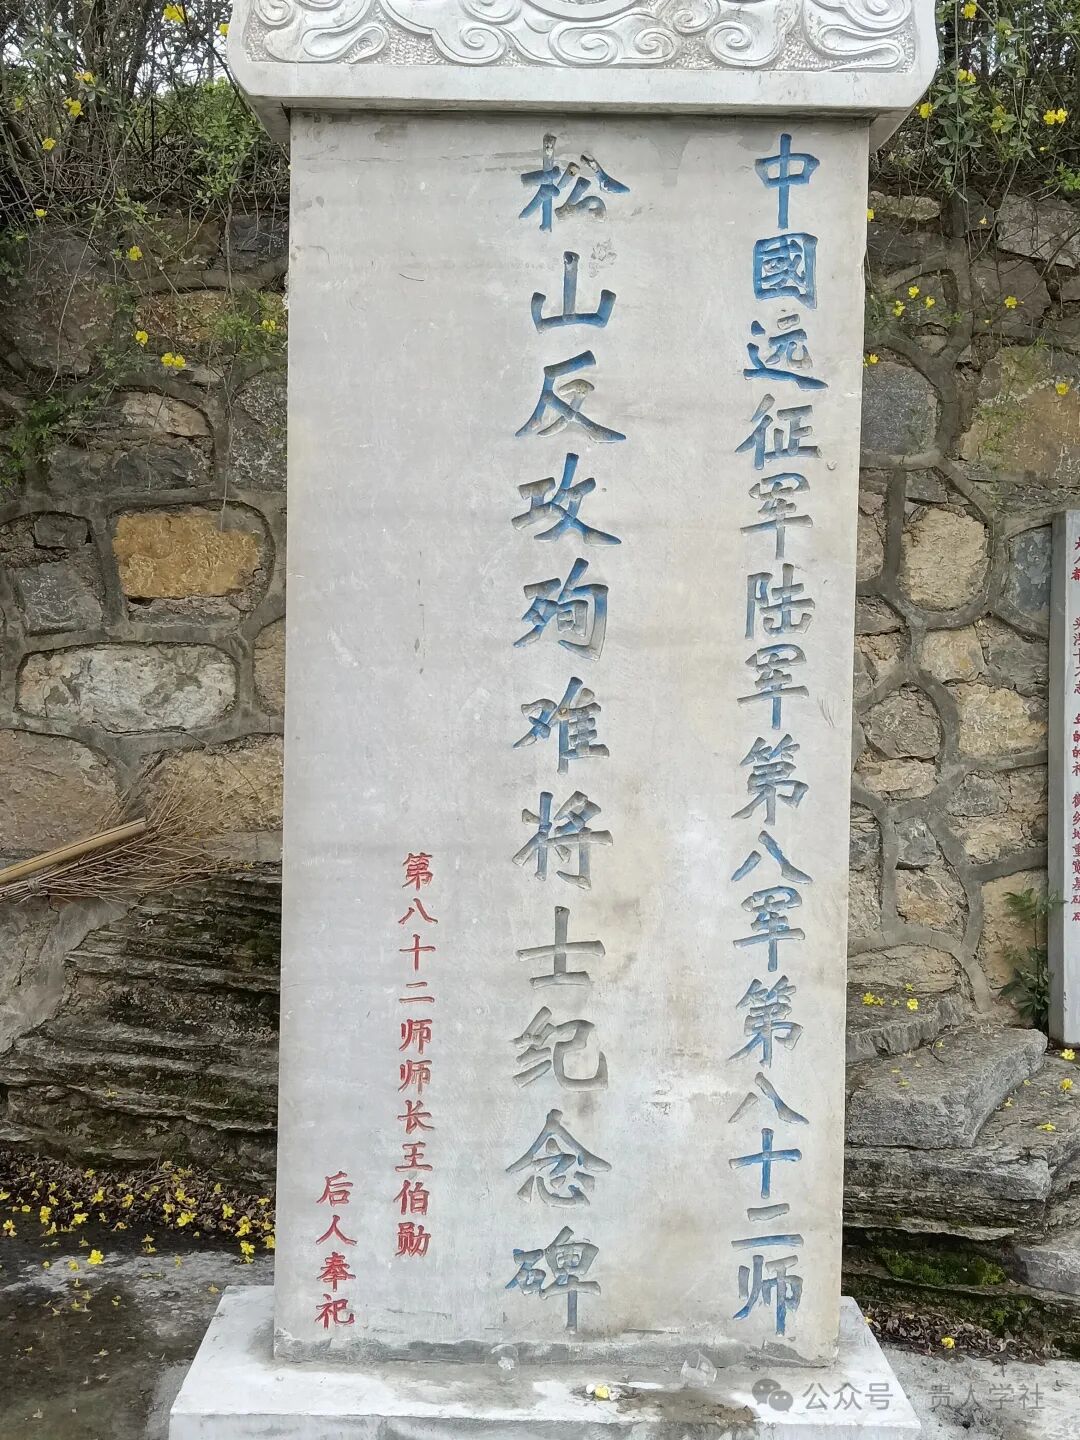 中國远征军陆军第八军第八十二师
松山反攻殉难将士纪念碑
第八十二师师长王伯勋
后人奉祀
公众号 · 贵人学社